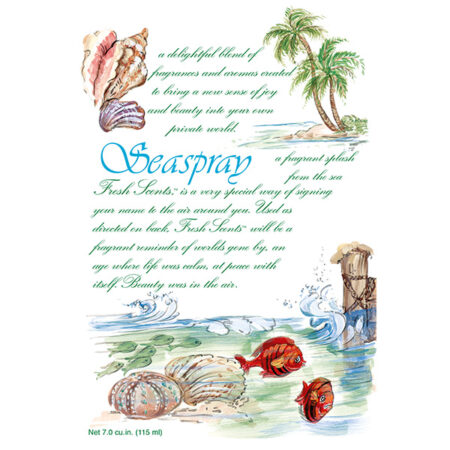 a delightful blend of
fragrances and aromas created
to bring a new sense of joy
and beauty into your own
private world.
Seaspray
a fragrant splash
from the sea
Fresh Scents,™ is a very special way of signing
your name to the air around you. Used as
directed on back, Fresh Scents™ will be a
fragrant reminder of worlds gone by, an
age where life was calm, at peace with
itself. Beauty was in the air.
Net 7.0 cu.in. (115 ml)